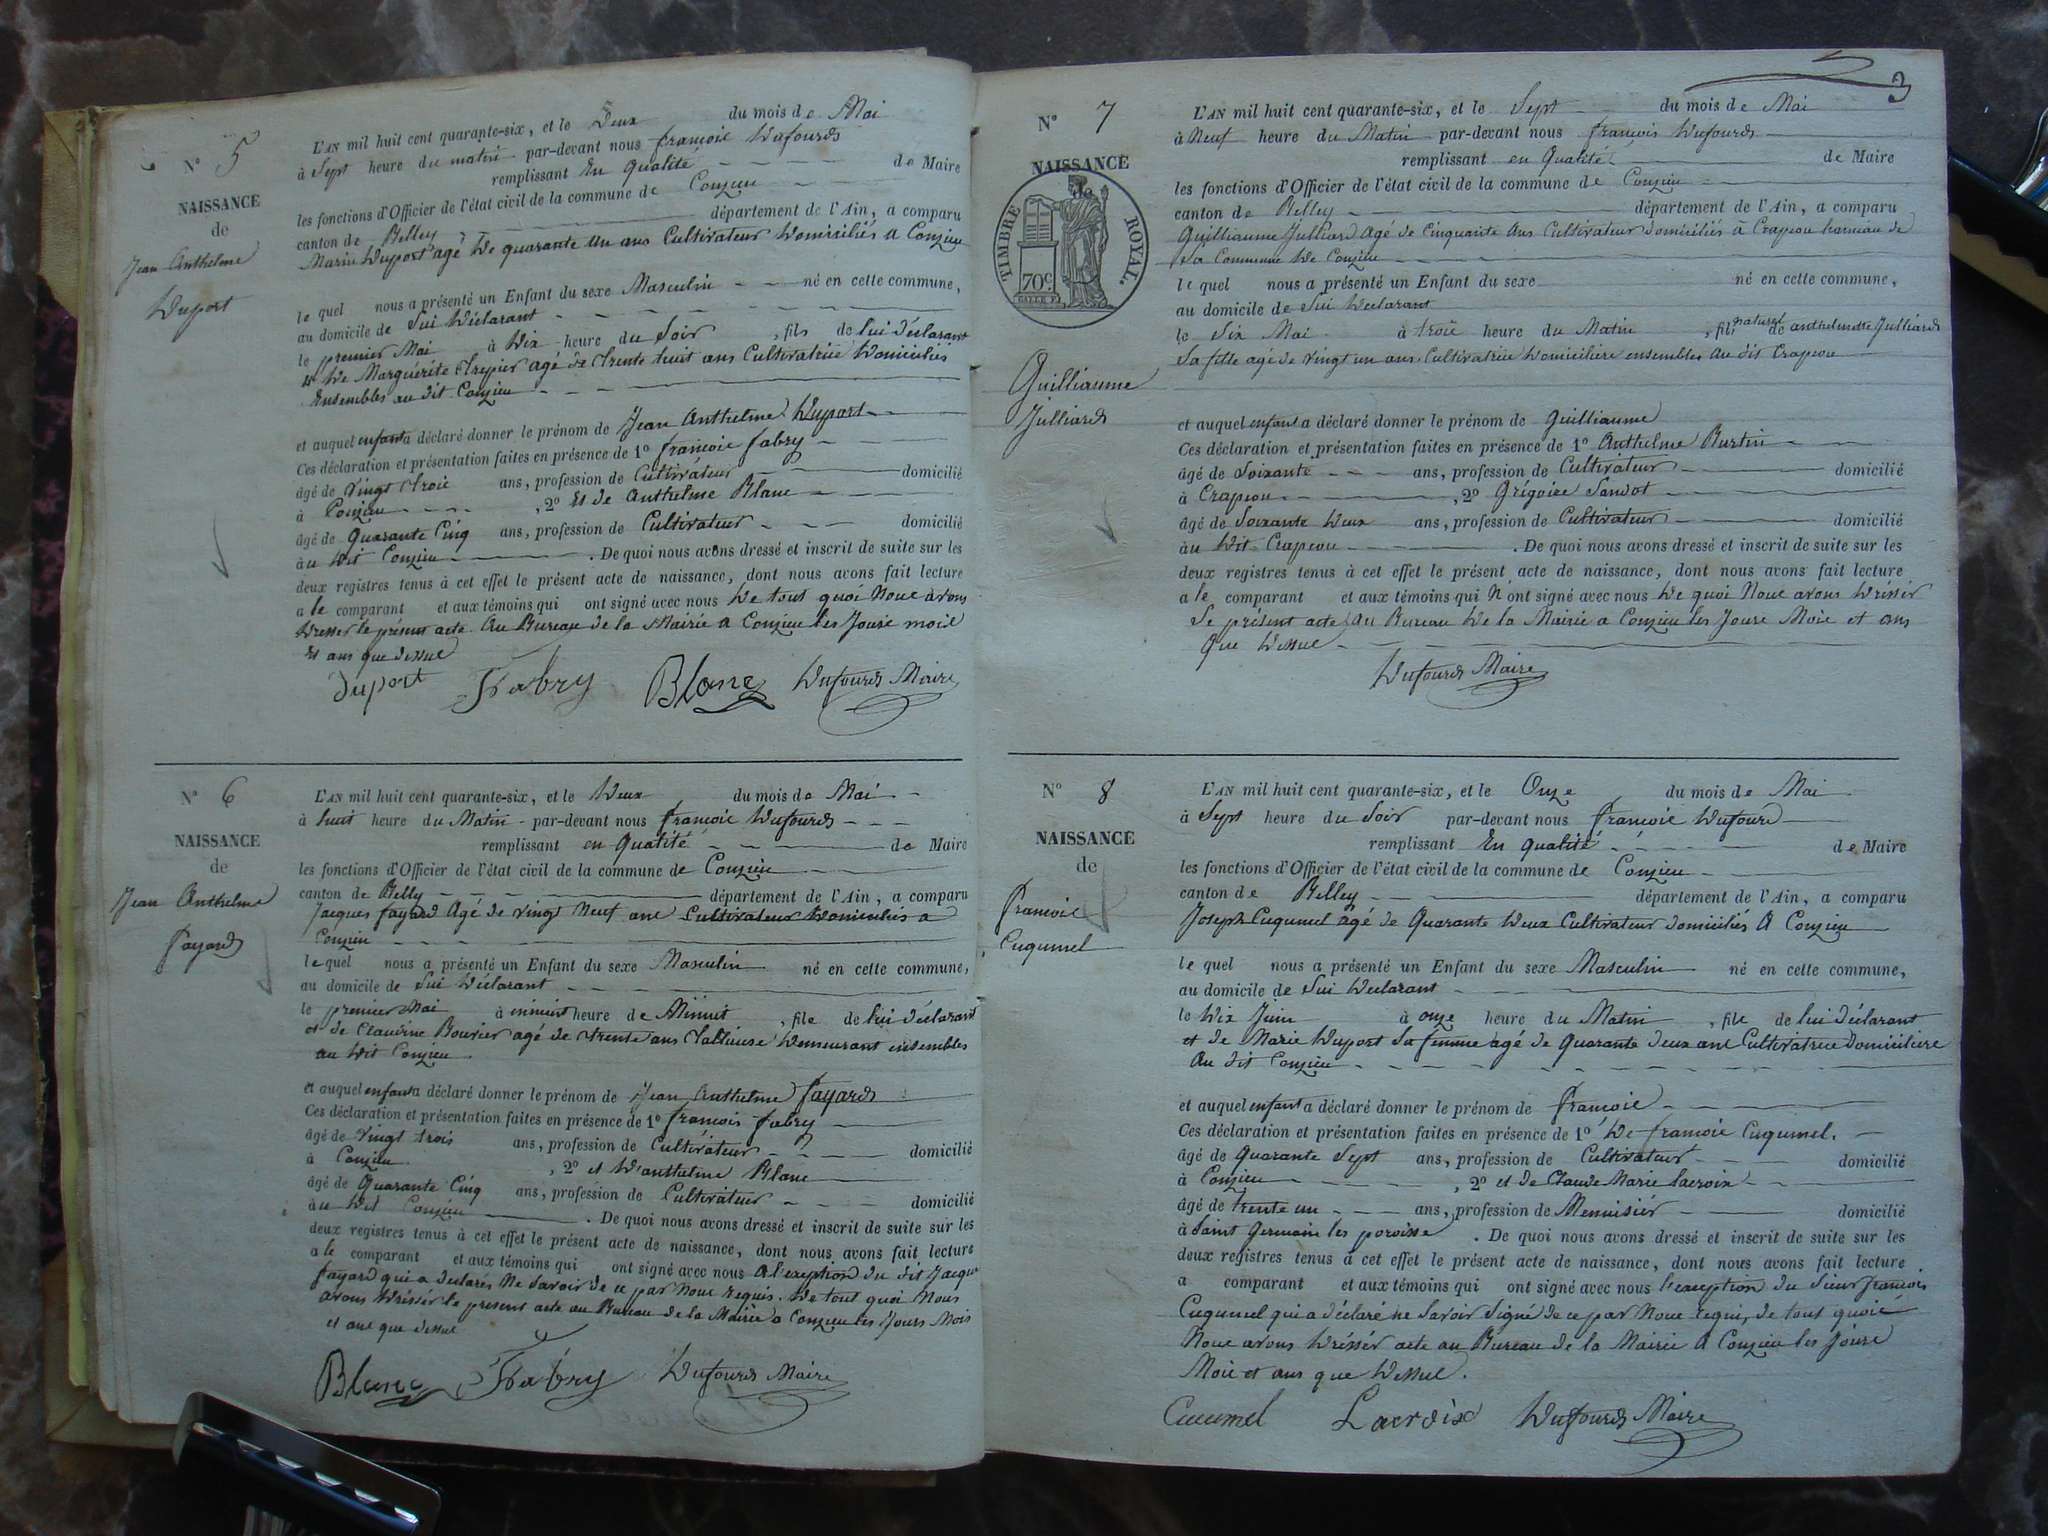 N° 5
NAISSANCE
de
Jean Anthelme
Duport
L'AN mil huit cent quarante-six, et le Deux du mois de Mai
à Sept heure du matin par-devant nous françois Dufourd
remplissant En qualité de Maire
les fonctions d'Officier de l'état civil de la commune de Conzieu
canton de Belley département de l'Ain, a comparu
Marin Duport agé De quarante un ans Cultivateur Domiciliés a Conzieu
le quel nous a présenté un Enfant du sexe Masculin né en cette commune,
au domicile de Lui Déclarant
le premier Mai à Dix heure du Soir, fils de lui déclarant
et De Marguerite agé de trente huit ans Cultivatrice Domiciliés
Ensembles au dit Conzieu
et auquel enfant a déclaré donner le prénom de Jean Anthelme Duport
Ces déclaration et présentation faites en présence de 1° françois fabry
âgé de vingt troie ans, profession de Cultivateur domicilié
à Conzieu, 2° Et de Anthelme Blanc
âgé de Quarante Cinq ans, profession de Cultivateur domicilié
àu Dit Conzieu. De quoi nous avons dressé et inscrit de suite sur les
deux registres tenus à cet effet le présent acte de naissance, dont nous avons fait lecture
a le comparant et aux témoins qui ont signé avec nous De tout quoi Nous avons
Dresser le présent acte Au Bureau de la Mairie a Conzieu les Jours mois
Et ans que dessus
Duport Fabry Blanc Dufourd Maire
N° 6
NAISSANCE
de
Jean Anthelme
fayard
L'AN mil huit cent quarante-six, et le Deux du mois de Mai
à huit heure du Matin par-devant nous françois Dufourd
remplissant en Qualité de Maire
les fonctions d'Officier de l'état civil de la commune de Conzieu
canton de Belly département de l'Ain, a comparu
Jacques fayard Agé de vingt Neuf ans Cultivateur Domiciliés a
Conzieu
le quel nous a présenté un Enfant du sexe Masculin né en cette commune,
au domicile de Lui Déclarant
le premier Mai à heure de Minuit, fils de lui déclarant
et de Claudine Bouvier agé de trente ans Demeurant ensembles
au Dit Conzieu
et auquel enfant a déclaré donner le prénom de Jean Anthelme fayard
Ces déclaration et présentation faites en présence de 1° françois fabry
âgé de vingt trois ans, profession de Cultivateur domicilié
à Conzieu, 2° et D'anthelme Blanc
âgé de Quarante Cinq ans, profession de Cultivateur domicilié
àu Dit Conzieu. De quoi nous avons dressé et inscrit de suite sur les
deux registres tenus à cet effet le présent acte de naissance, dont nous avons fait lecture
a le comparant et aux témoins qui ont signé avec nous a l'exeption du dit Jacques
fayard qui a declarés Ne Savoir de ce par Nous requis. De tout quoi Nous
avons Dressér le present acte au Bureau de la Mairie a Conzieu les Jours Mois
et ans que dessus
Blanc Fabry Dufourd Maire
3
N° 7
NAISSANCE
de
TIMBRE ROYAL
70 c.
Guilliaume
Julliard
L'AN mil huit cent quarante-six, et le Sept du mois de Mai
à Neuf heure du Matin par-devant nous françois Dufourd
remplissant en Qualité de Maire
les fonctions d'Officier de l'état civil de la commune de Conzieu
canton de Belley département de l'Ain, a comparu
Guilliaume Julliard Agé de Cinquante Ans Cultivateur domiciliés à Crapeou hameau de
La Commune De Conzieu
le quel nous a présenté un Enfant du sexe né en cette commune,
au domicile de Lui Déclarant
le Six Mai à troie heure du Matin, fils naturel de anthelmette Julliard
Sa fille agé de vingt un ans Cultivatrice Domiciliere ensembles Au dit Crapeou
et auquel enfant a déclaré donner le prénom de Guilliaume
Ces déclaration et présentation faites en présence de 1° Anthelme Burtin
âgé de Soixante ans, profession de Cultivateur domicilié
à Crapeou, 2° Grégoire Sandot
âgé de Soixante Deux ans, profession de Cultivateur domicilié
àu Dit Crapeou. De quoi nous avons dressé et inscrit de suite sur les
deux registres tenus à cet effet le présent acte de naissance, dont nous avons fait lecture
a le comparant et aux témoins qui N'ont signé avec nous De quoi Nous avons Dressér
Le présent acte au Bureau De la Mairie a Conzieu les Jours Mois et ans
Que Dessus
Dufourd Maire
N° 8
NAISSANCE
de
françois
Cugumel
L'AN mil huit cent quarante-six, et le Onze du mois de Mai
à Sept heure du Soir par-devant nous françois Dufourd
remplissant En qualité de Maire
les fonctions d'Officier de l'état civil de la commune de Conzieu
canton de Belley département de l'Ain, a comparu
Joseph Cugumel âgé de Quarante Deux Cultivateur domiciliés A Conzieu
le quel nous a présenté un Enfant du sexe Masculin né en cette commune,
au domicile de Lui Declarant
le Dix Juin à onze heure du Matin, fils de lui déclarant
et de Marie Duport Sa femme agé de Quarante deux ans Cultivatrice domiciliere
Au dit Conzieu
et auquel enfant a déclaré donner le prénom de françois
Ces déclaration et présentation faites en présence de 1° De françois Cugumel.
âgé de Quarante Sept ans, profession de Cultivateur domicilié
à Conzieu, 2° et de Claude Marie Lacroix
âgé de trente un ans, profession de Menuisiér domicilié
à Saint Germain les paroisse. De quoi nous avons dressé et inscrit de suite sur les
deux registres tenus à cet effet le présent acte de naissance, dont nous avons fait lecture
a comparant et aux témoins qui ont signé avec nous l'exeption du Sieur françois
Cugumel qui a déclaré ne Savoir Signé de ce par Nous requi, de tout quoi
Nous avons Dréssér acte au Bureau de la Mairie A Conzieu les Jours
Mois et ans que Dessus.
Cucumel Lacroix Dufourd Maire